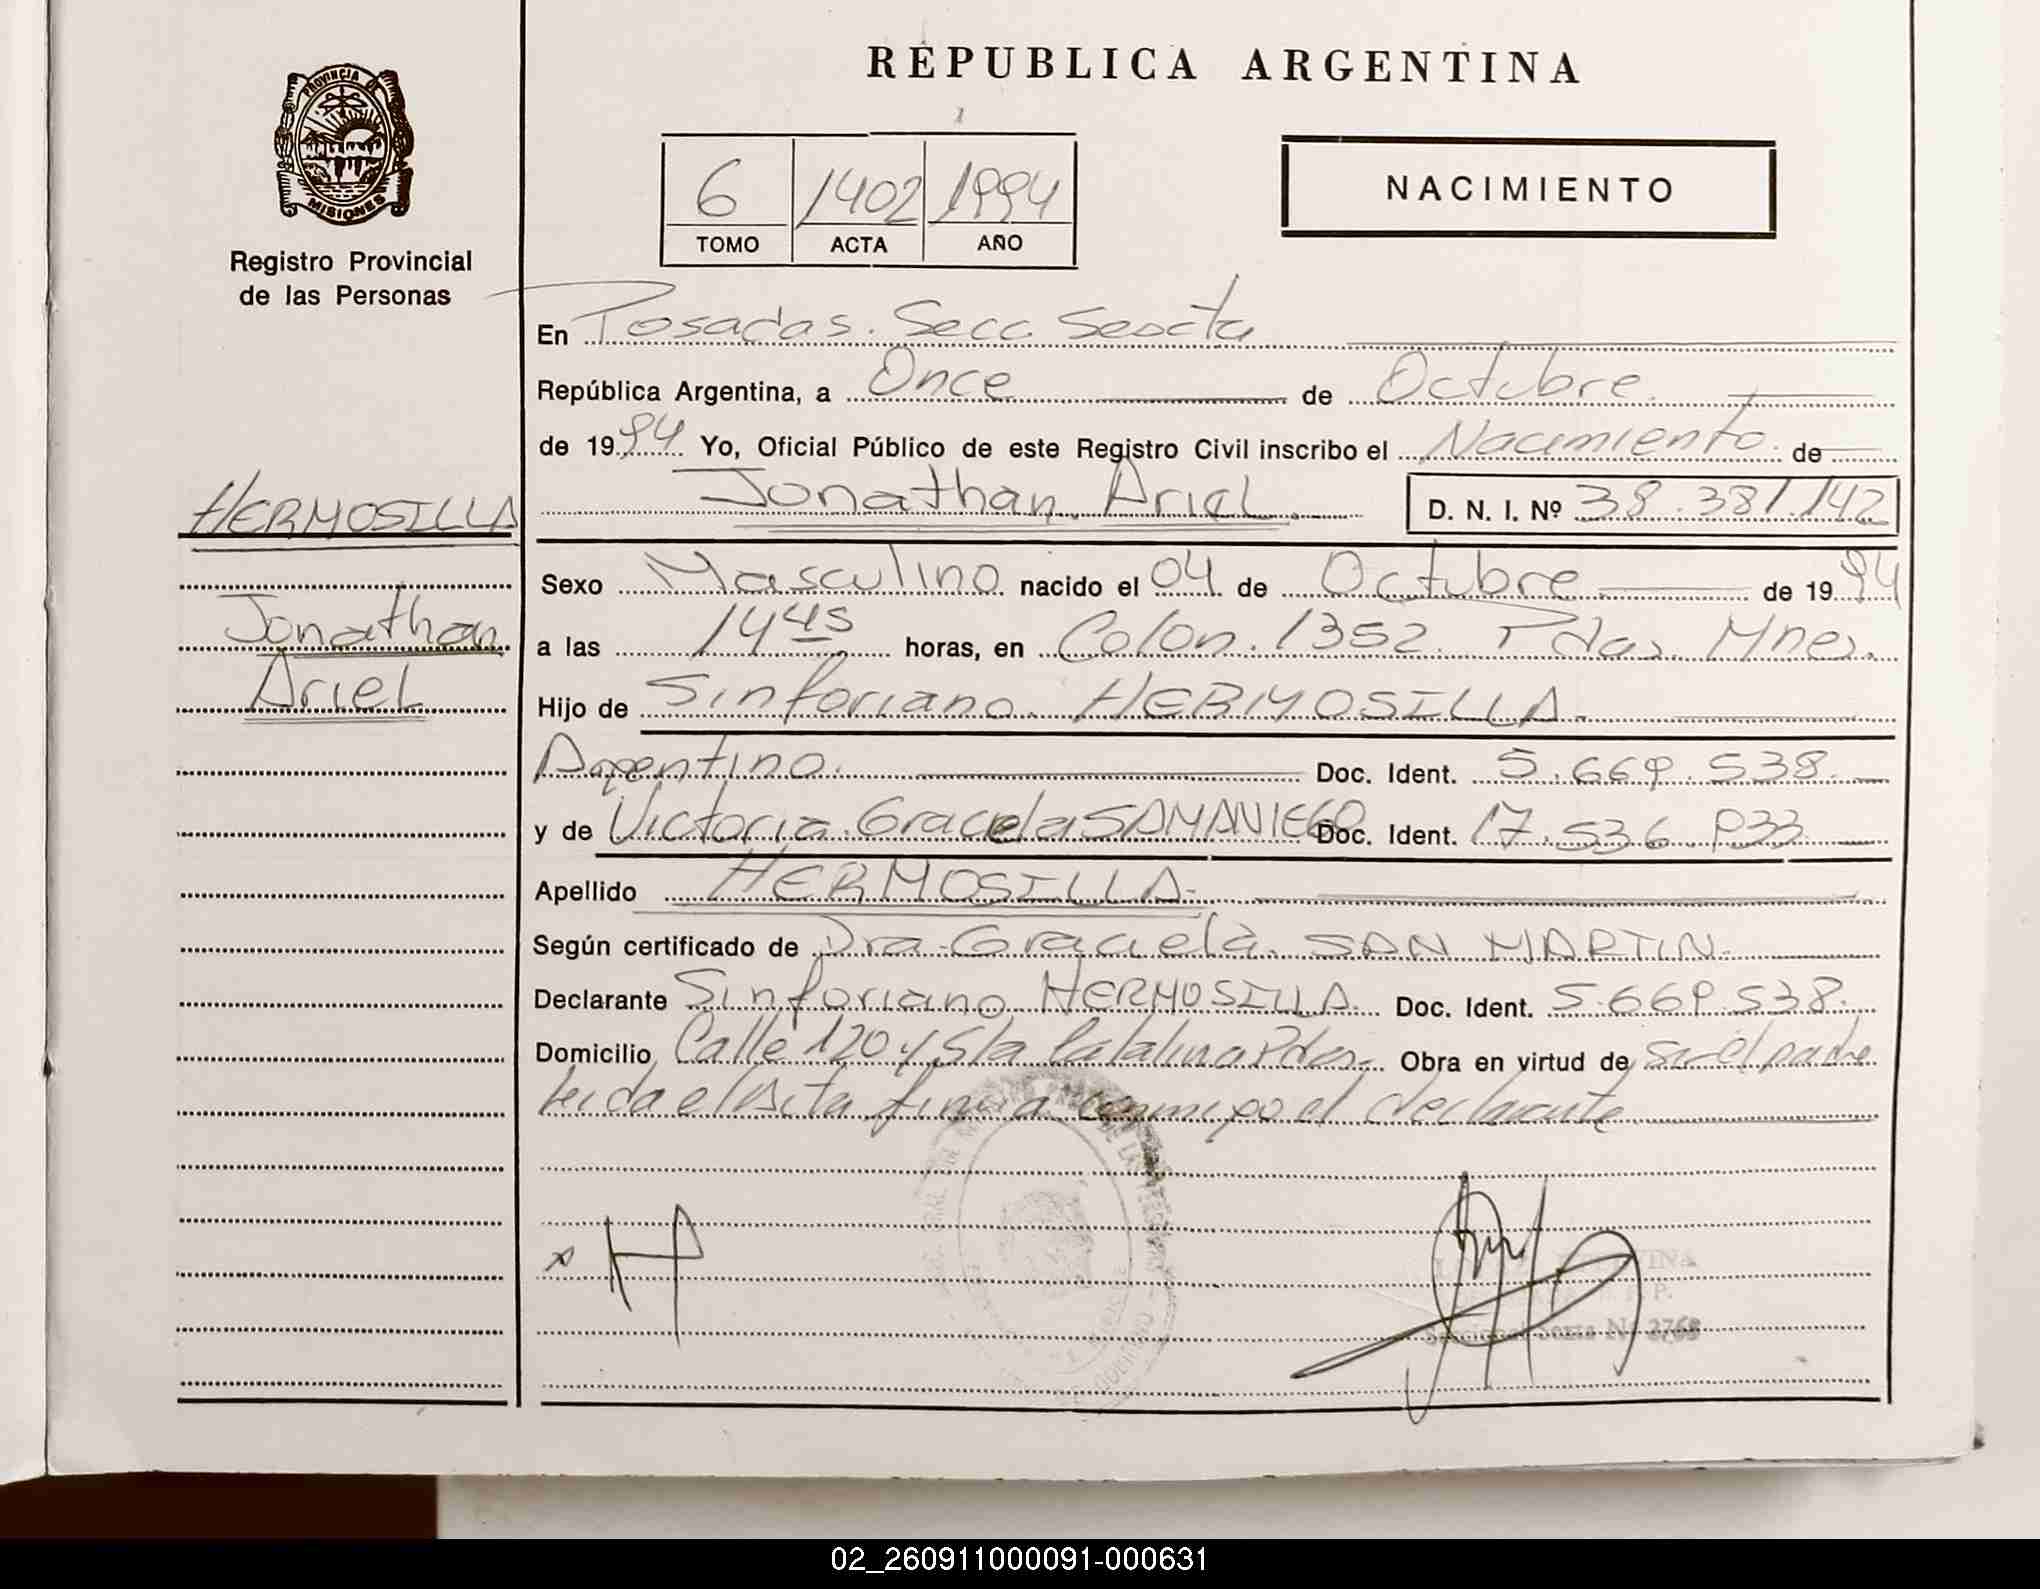 REPUBLICA ARGENTINA
PROVINCIA DE
MISIONES
Registro Provincial
de las Personas
6 1402 1994
TOMO ACTA AÑO
NACIMIENTO
En Posadas. Secc. Sexta
República Argentina, a Once de Octubre.
de 1994 Yo, Oficial Público de este Registro Civil inscribo el Nacimiento. de
Jonathan Ariel. D. N. I. Nº 38.381.142
HERMOSILLA
Jonathan
Ariel
Sexo Masculino nacido el 04 de Octubre de 1994
a las 14 45 horas, en Colon. 1352. Pdas. Mnes.
Hijo de Sinforiano HERMOSILLA.
Argentino. Doc. Ident. 5.669.538.
y de Victoria Graciela SAMANIEGO Doc. Ident. 17.536.933
Apellido HERMOSILLA.
Según certificado de Dra. Graciela SAN MARTIN.
Declarante Sinforiano HERMOSILLA. Doc. Ident. 5.669.538.
Domicilio Calle 120 y Sta Catalina Pdas. Obra en virtud de ser el padre
leida el acta firma conmigo el declarante
Seccional Sexta Nº 3768
02_260911000091-000631